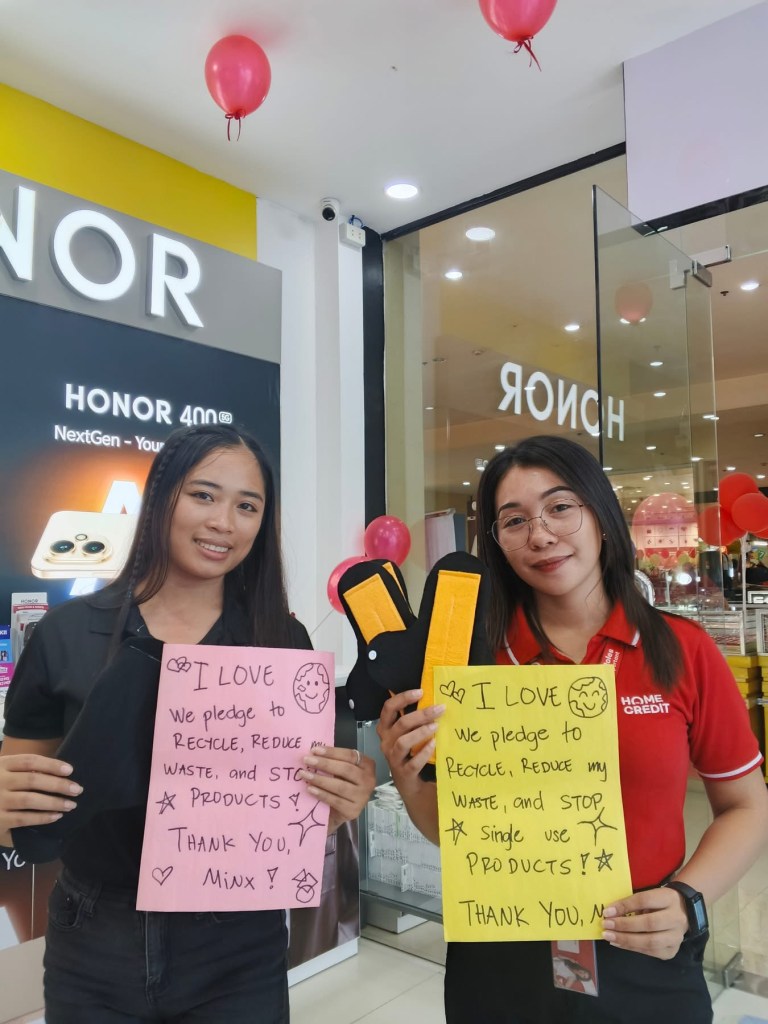 NOR
HONOR 400 5G
NextGen - Your
HONOR
I LOVE
We pledge to
RECYCLE, REDUCE
WASTE, and STO
PRODUCTS!
THANK YOU,
Minx!
I LOVE
We pledge to
RECYCLE, REDUCE my
WASTE, and STOP
Single use
PRODUCTS!
THANK YOU,
HOME
CREDIT